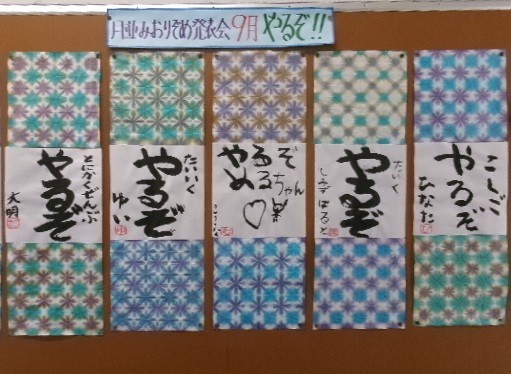 みおりぞめ発表会 9月 やるぞ!!
こくご
やるぞ
ひなた
たいく
やるぞ
しみずはると
ぞ
るる
やめ
ちゃん
♡
たいいく
やるぞ
ゆい
とにかくぜんぶ
やるぞ
大明